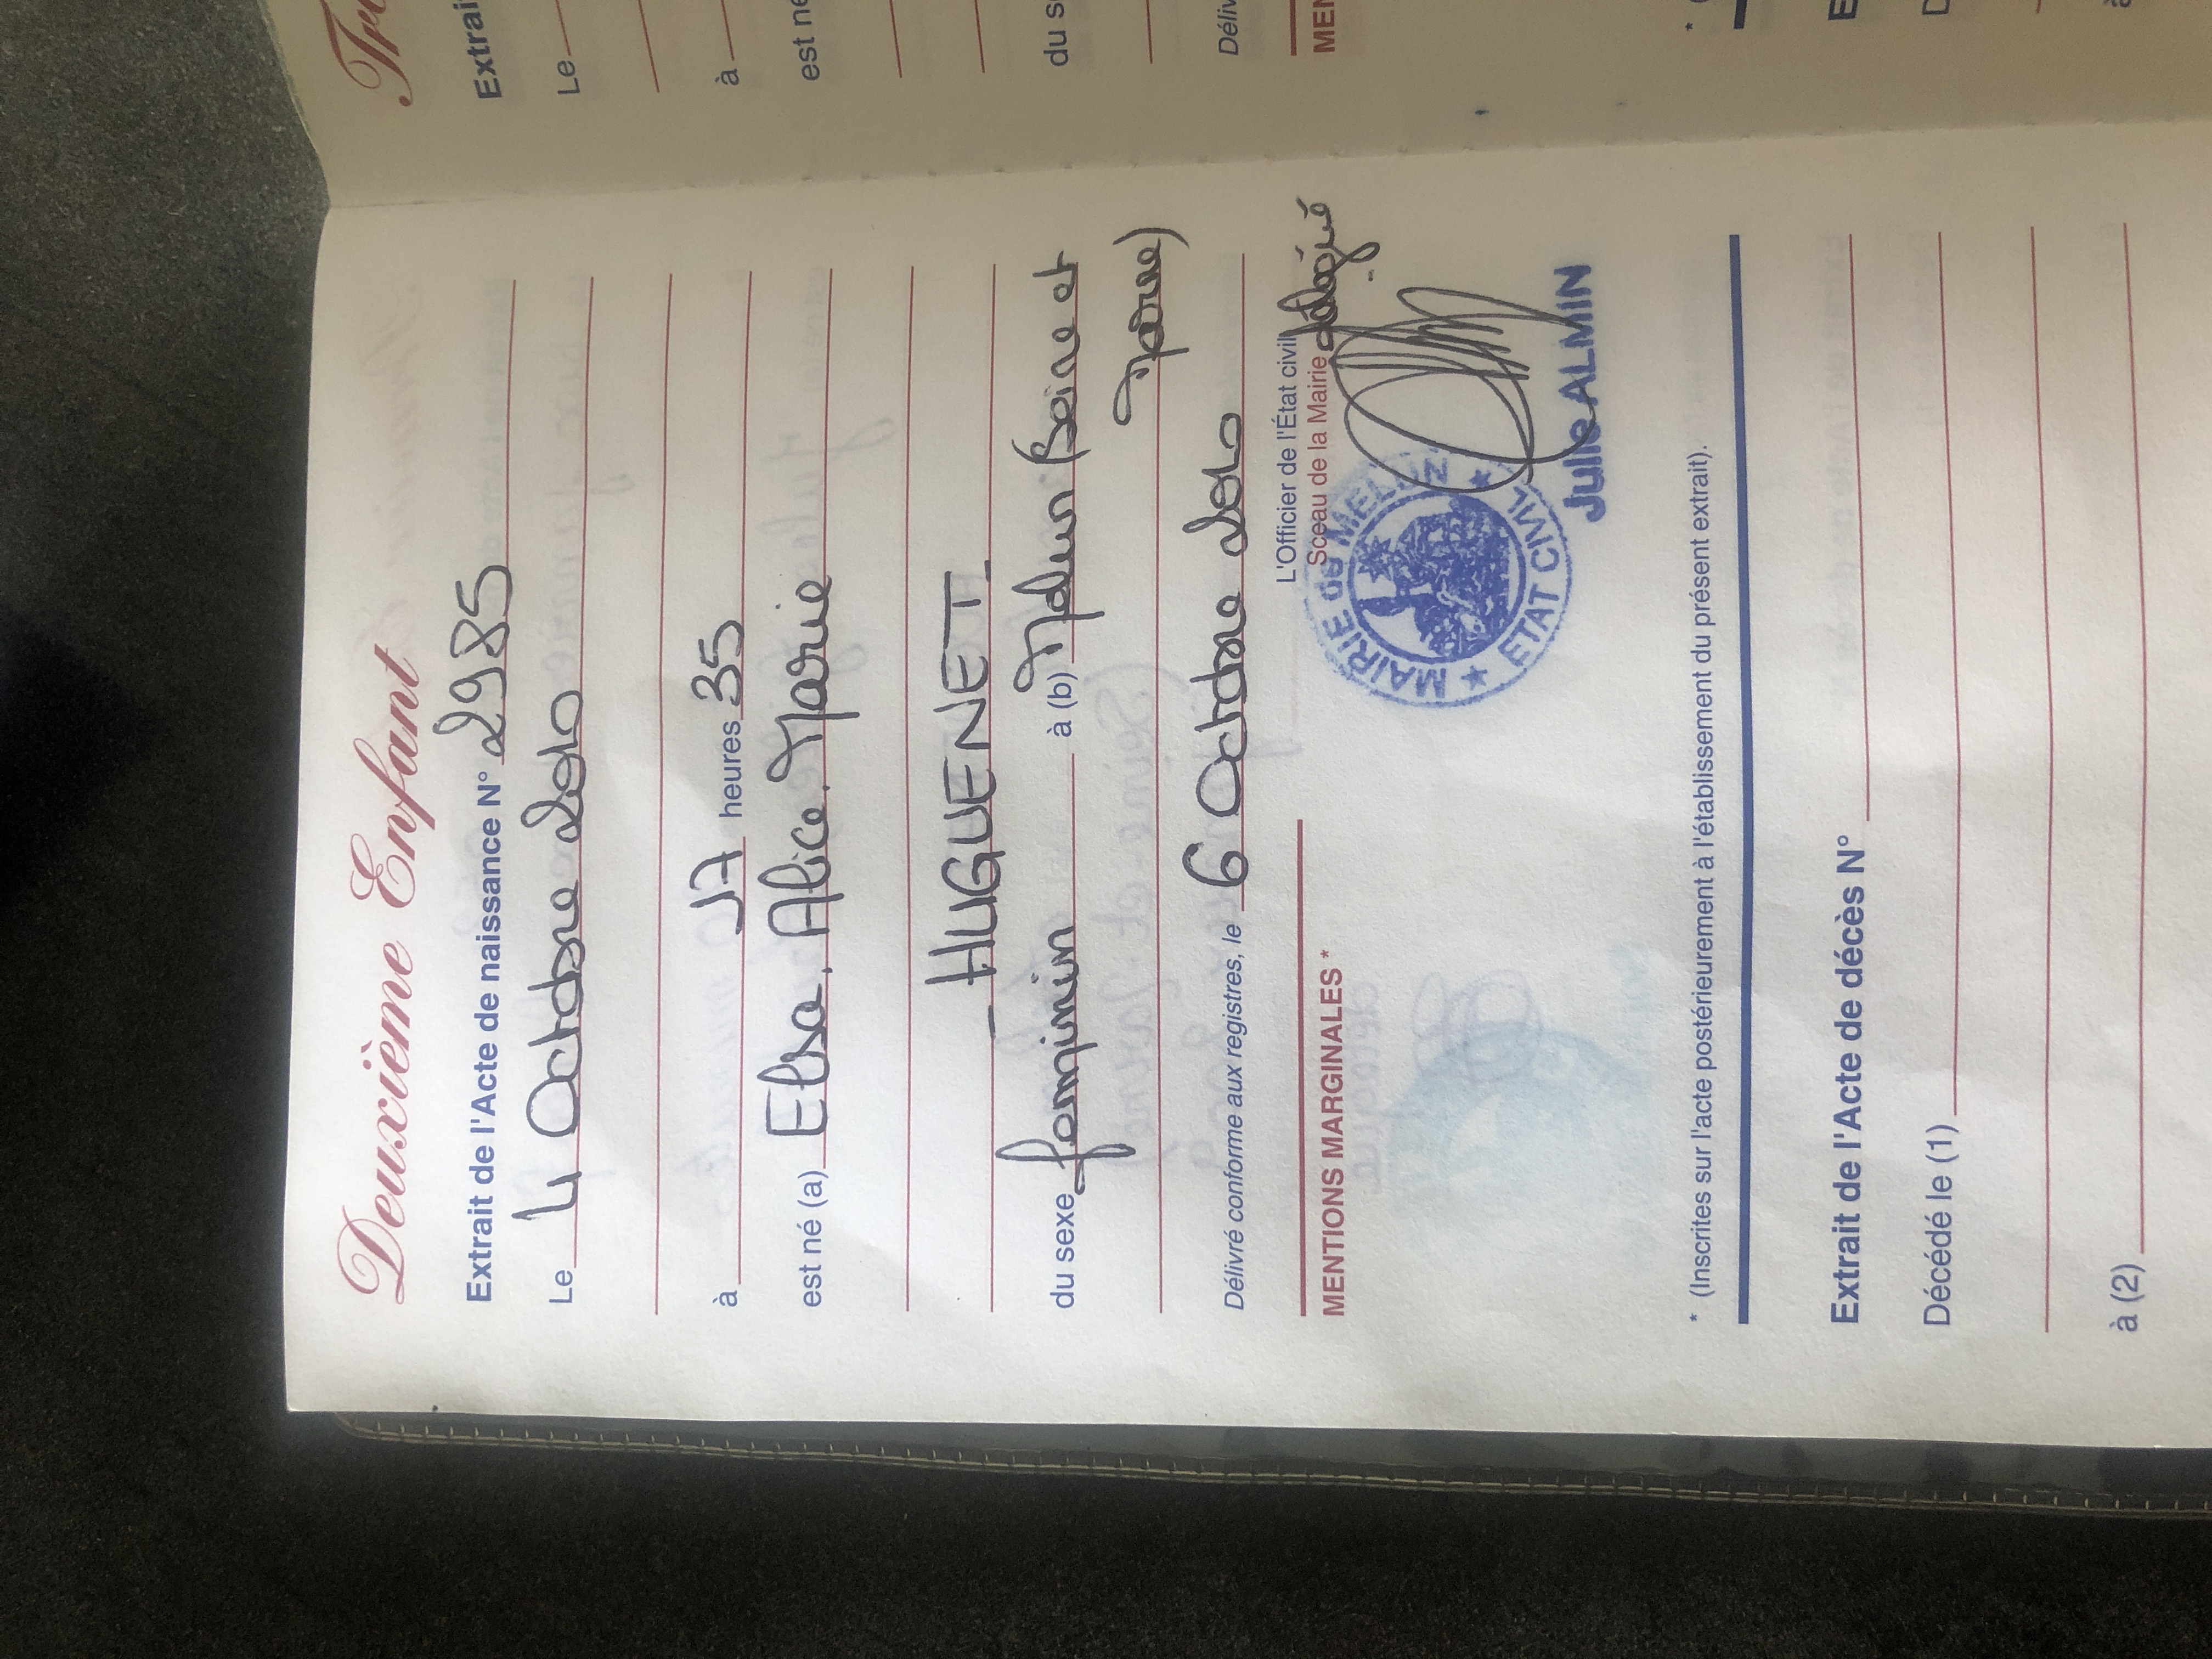 Deuxième Enfant
Extrait de l'Acte de naissance N° 2985
Le 4 Octobre 2010
à 17 heures 35
est né (a) Elsa, Alice, Marie
_ HUGUENET _
du sexe féminin à (b) Melun (Seine et
Marne)
Délivré conforme aux registres, le 6 Octobre 2010
L'Officier de l'État civil
Sceau de la Mairie délégué
MAIRIE de MELUN
ETAT CIVIL
Julie ALMIN
MENTIONS MARGINALES *
* (Inscrites sur l'acte postérieurement à l'établissement du présent extrait).
Extrait de l'Acte de décès N°
Décédé le (1)
à (2)
Tr
Extrai
Le
à
est né
du s
Déliv
MEN
* (
E
D
à